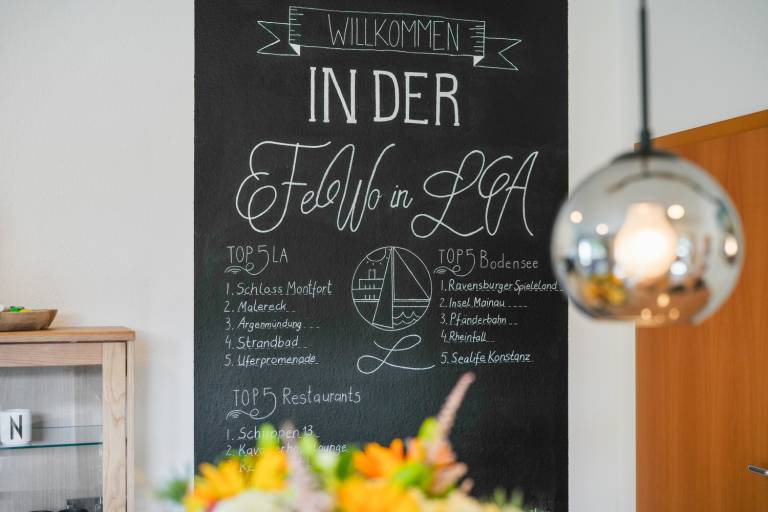 WILLKOMMEN
IN DER
FeWo in LGA
TOP 5 LA
1. Schloss Montfort
2. Malereck
3. Argenmündung
4. Strandbad
5. Uferpromenade
TOP 5 Bodensee
1. Ravensburger Spieleland
2. Insel Mainau
3. Pfänderbahn
4. Rheinfall
5. Sealife Konstanz
L
TOP 5 Restaurants
1. Schuppen 13
2. Lounge
N